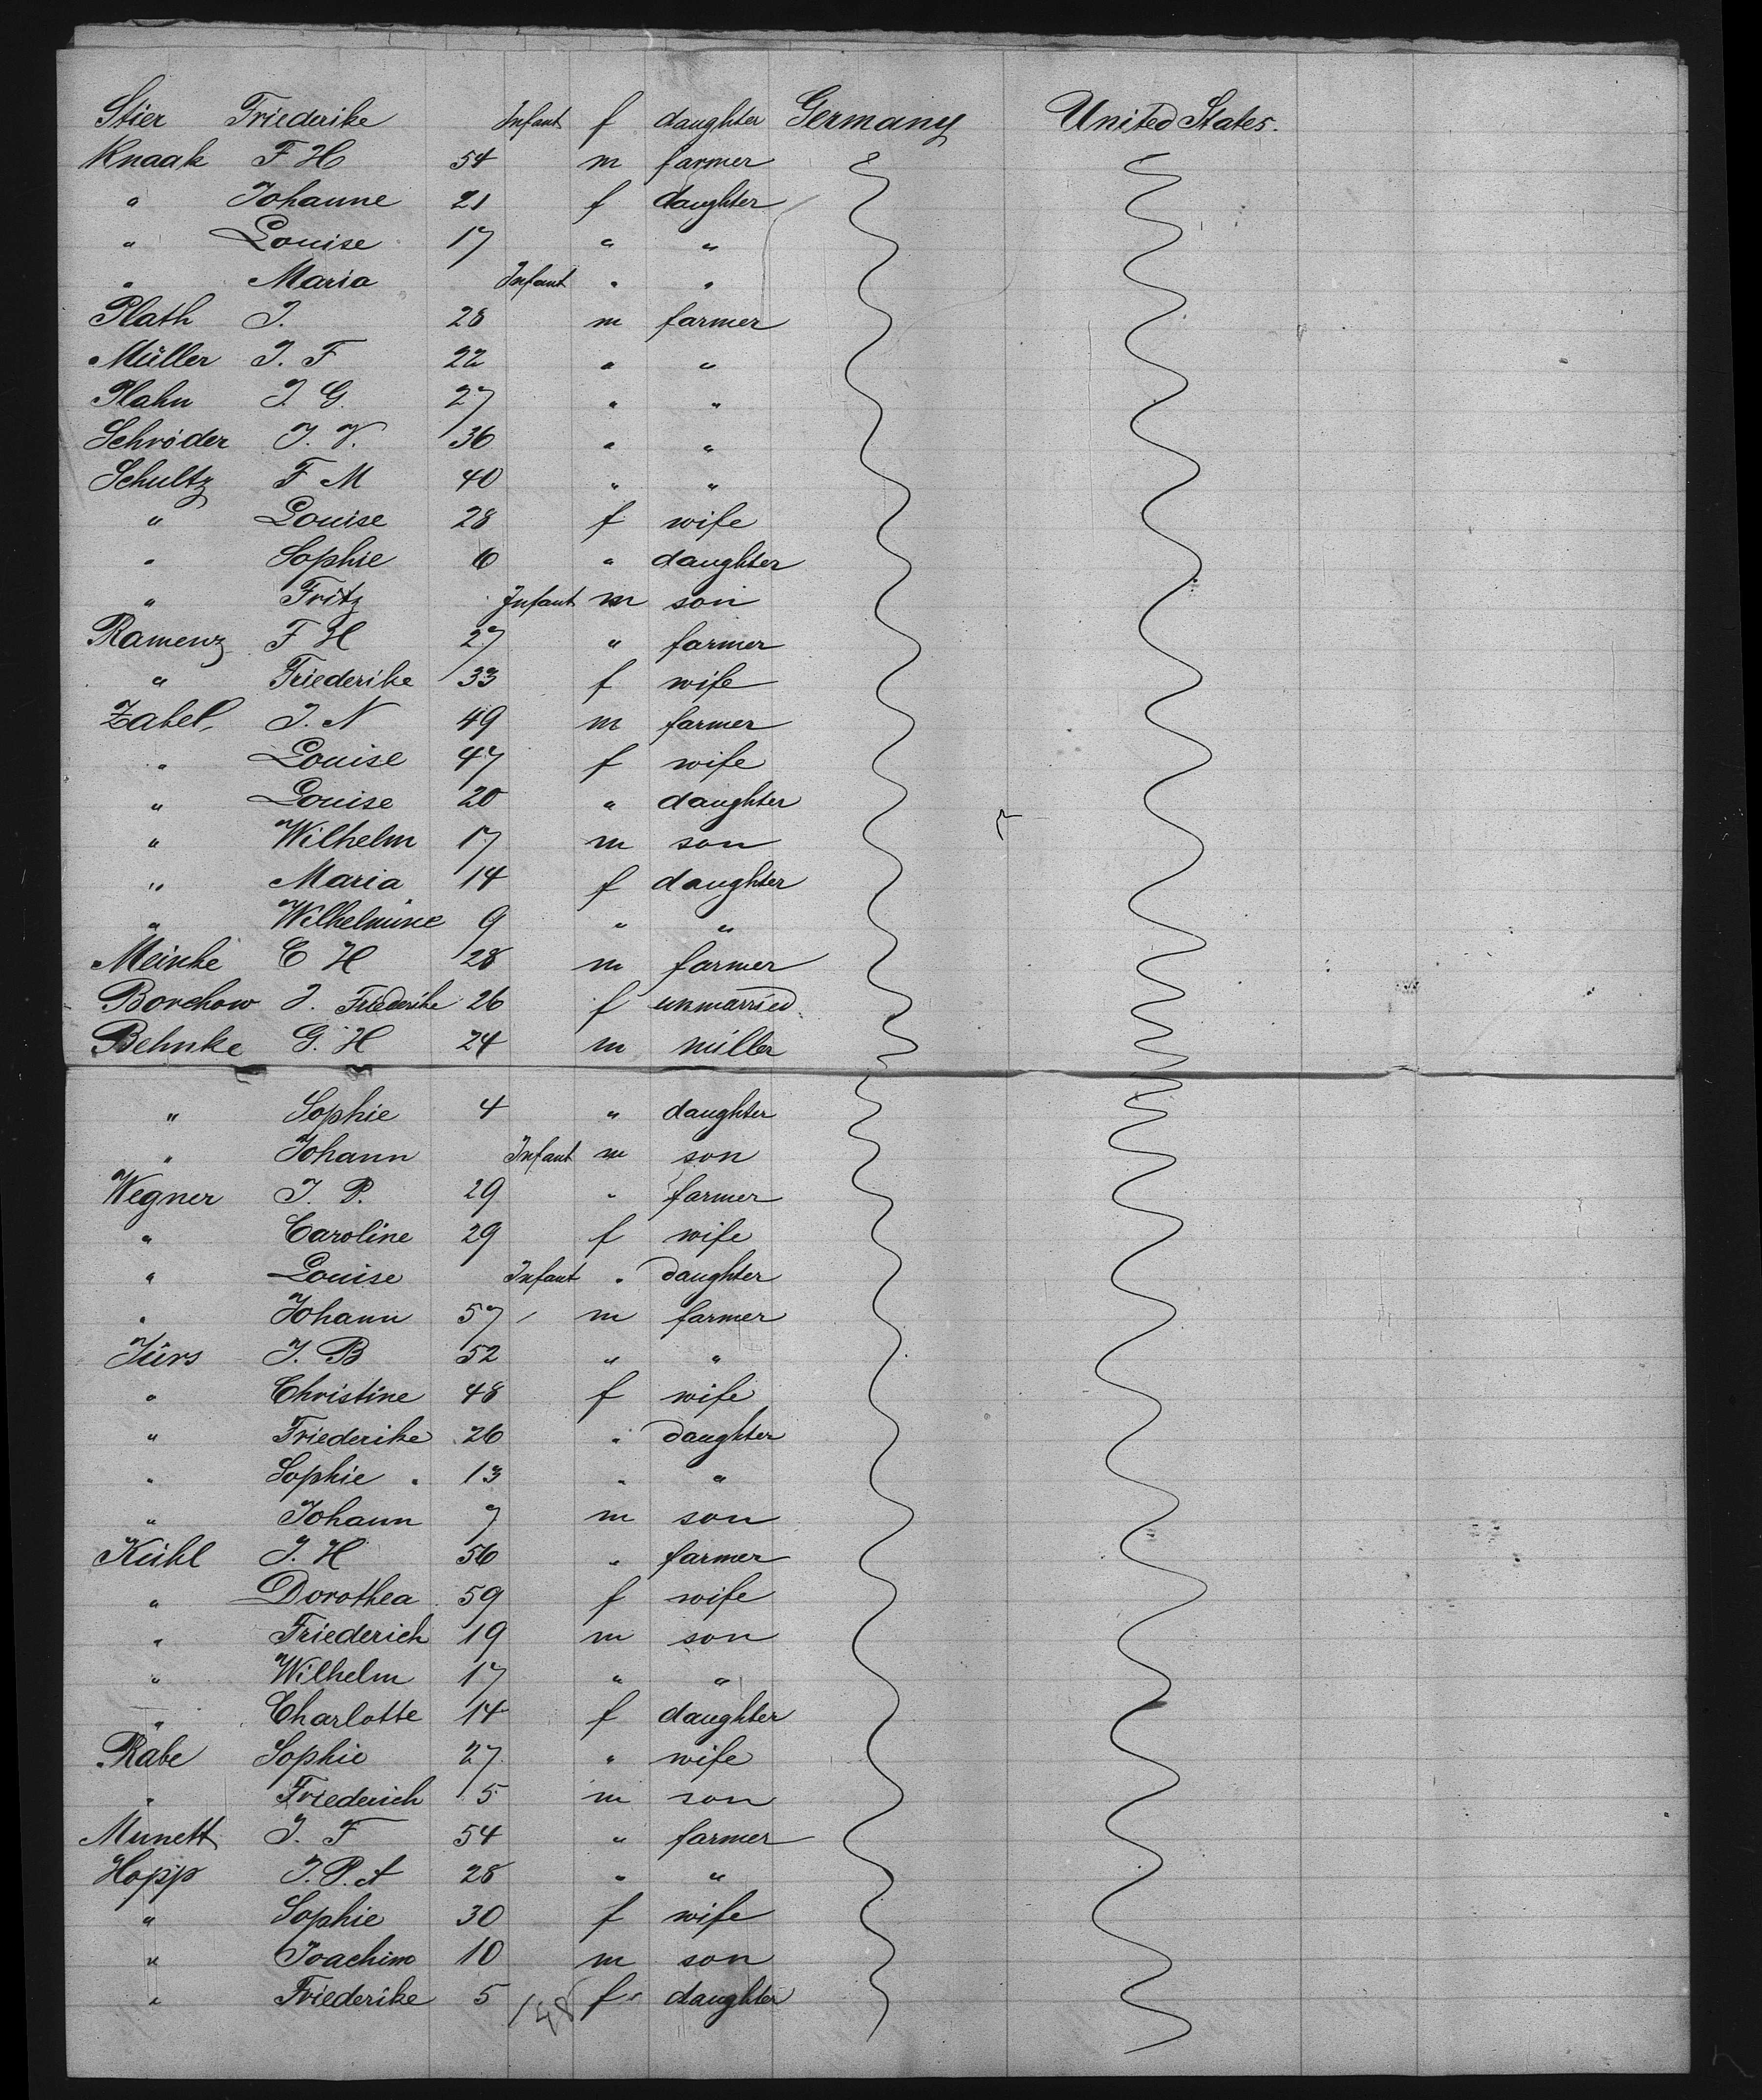 Stier Friederike Infant f daughter Germany United States.
Knaak F H 54 m farmer
" Johanne 21 f daughter
" Louise 17 " "
" Maria Infant " "
Plath J. 28 m farmer
Müller J. F 22 " "
Plahn J. G. 27 " "
Schröder J. V. 36 " "
Schultz F M 40 " "
" Louise 28 f wife
" Sophie 6 " daughter
" Fritz Infant m son
Ramenz F H 27 " farmer
" Friederike 33 f wife
Zabel, J. N 49 m farmer
" Louise 47 f wife
" Louise 20 " daughter
" Wilhelm 17 m son
" Maria 14 f daughter
" Wilhelmine 9 " "
Meinke C H 28 m farmer
Borchow J. Friederike 26 f unmarried
Behnke G. H 24 m miller
" Sophie 4 " daughter
" Johann Infant m son
Wegner J. P. 29 " farmer
" Caroline 29 f wife
" Louise Infant " daughter
" Johann 57 m farmer
Jürs J. B 52 " "
" Christine 48 f wife
" Friederike 26 " daughter
" Sophie 13 " "
" Johann 7 m son
Kühl J. H 56 " farmer
" Dorothea 59 f wife
" Friederich 19 m son
" Wilhelm 17 " "
" Charlotte 14 f daughter
Rabe Sophie 27 " wife
" Friederich 5 m son
Munett J. F 54 " farmer
Hopp J. P. A 28 " "
" Sophie 30 f wife
" Joachim 10 m son
" Friederike 5 f daughter